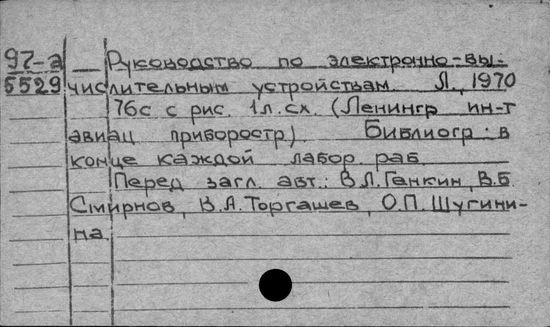 97-а — Руководство по электронно-вы-
5529 числительным устройствам. Л., 1970
76с с рис. 1л.сх. (Ленингр ин-т
авиац приборостр) Библиогр: в
конце каждой лабор раб.
Перед загл. авт.: В.Л.Генкин, В.Б
Смирнов, В.А.Торгашев, О.П.Шугини-
на.